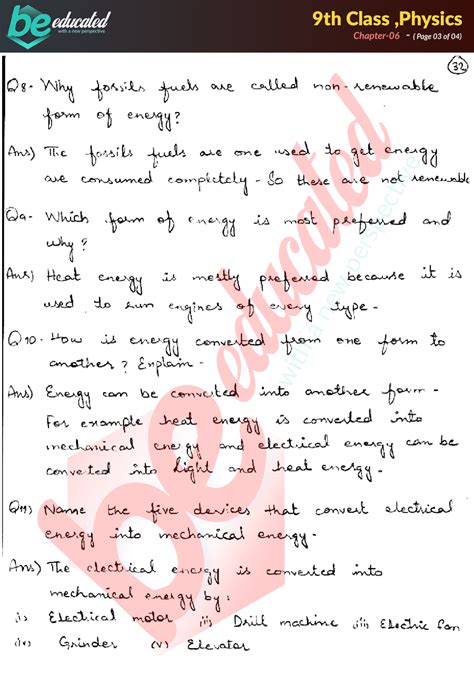 be educated
with a new perspective
9th Class ,Physics
Chapter-06 - ( Page 03 of 04)
32
Q8- Why fossils fuels are called non-renewable
form of energy?
Ans) The fossils fuels are one used to get energy
are consumed completely - So these are not renewable
Q9- Which form of energy is most preferred and
why?
Ans) Heat energy is mostly preferred because it is
used to run engines of every type -
Q10- How is energy converted from one form to
another? Explain -
Ans) Energy can be converted into another form -
For example heat energy is converted into
mechanical energy and electrical energy can be
converted into light and heat energy -
Q11) Name the five devices that convert electrical
energy into mechanical energy -
Ans) The electrical energy is converted into
mechanical energy by:
i) Electrical motor ii) Drill machine iii) Electric fan
iv) Grinder (v) Elevator
be educated
with a new perspective